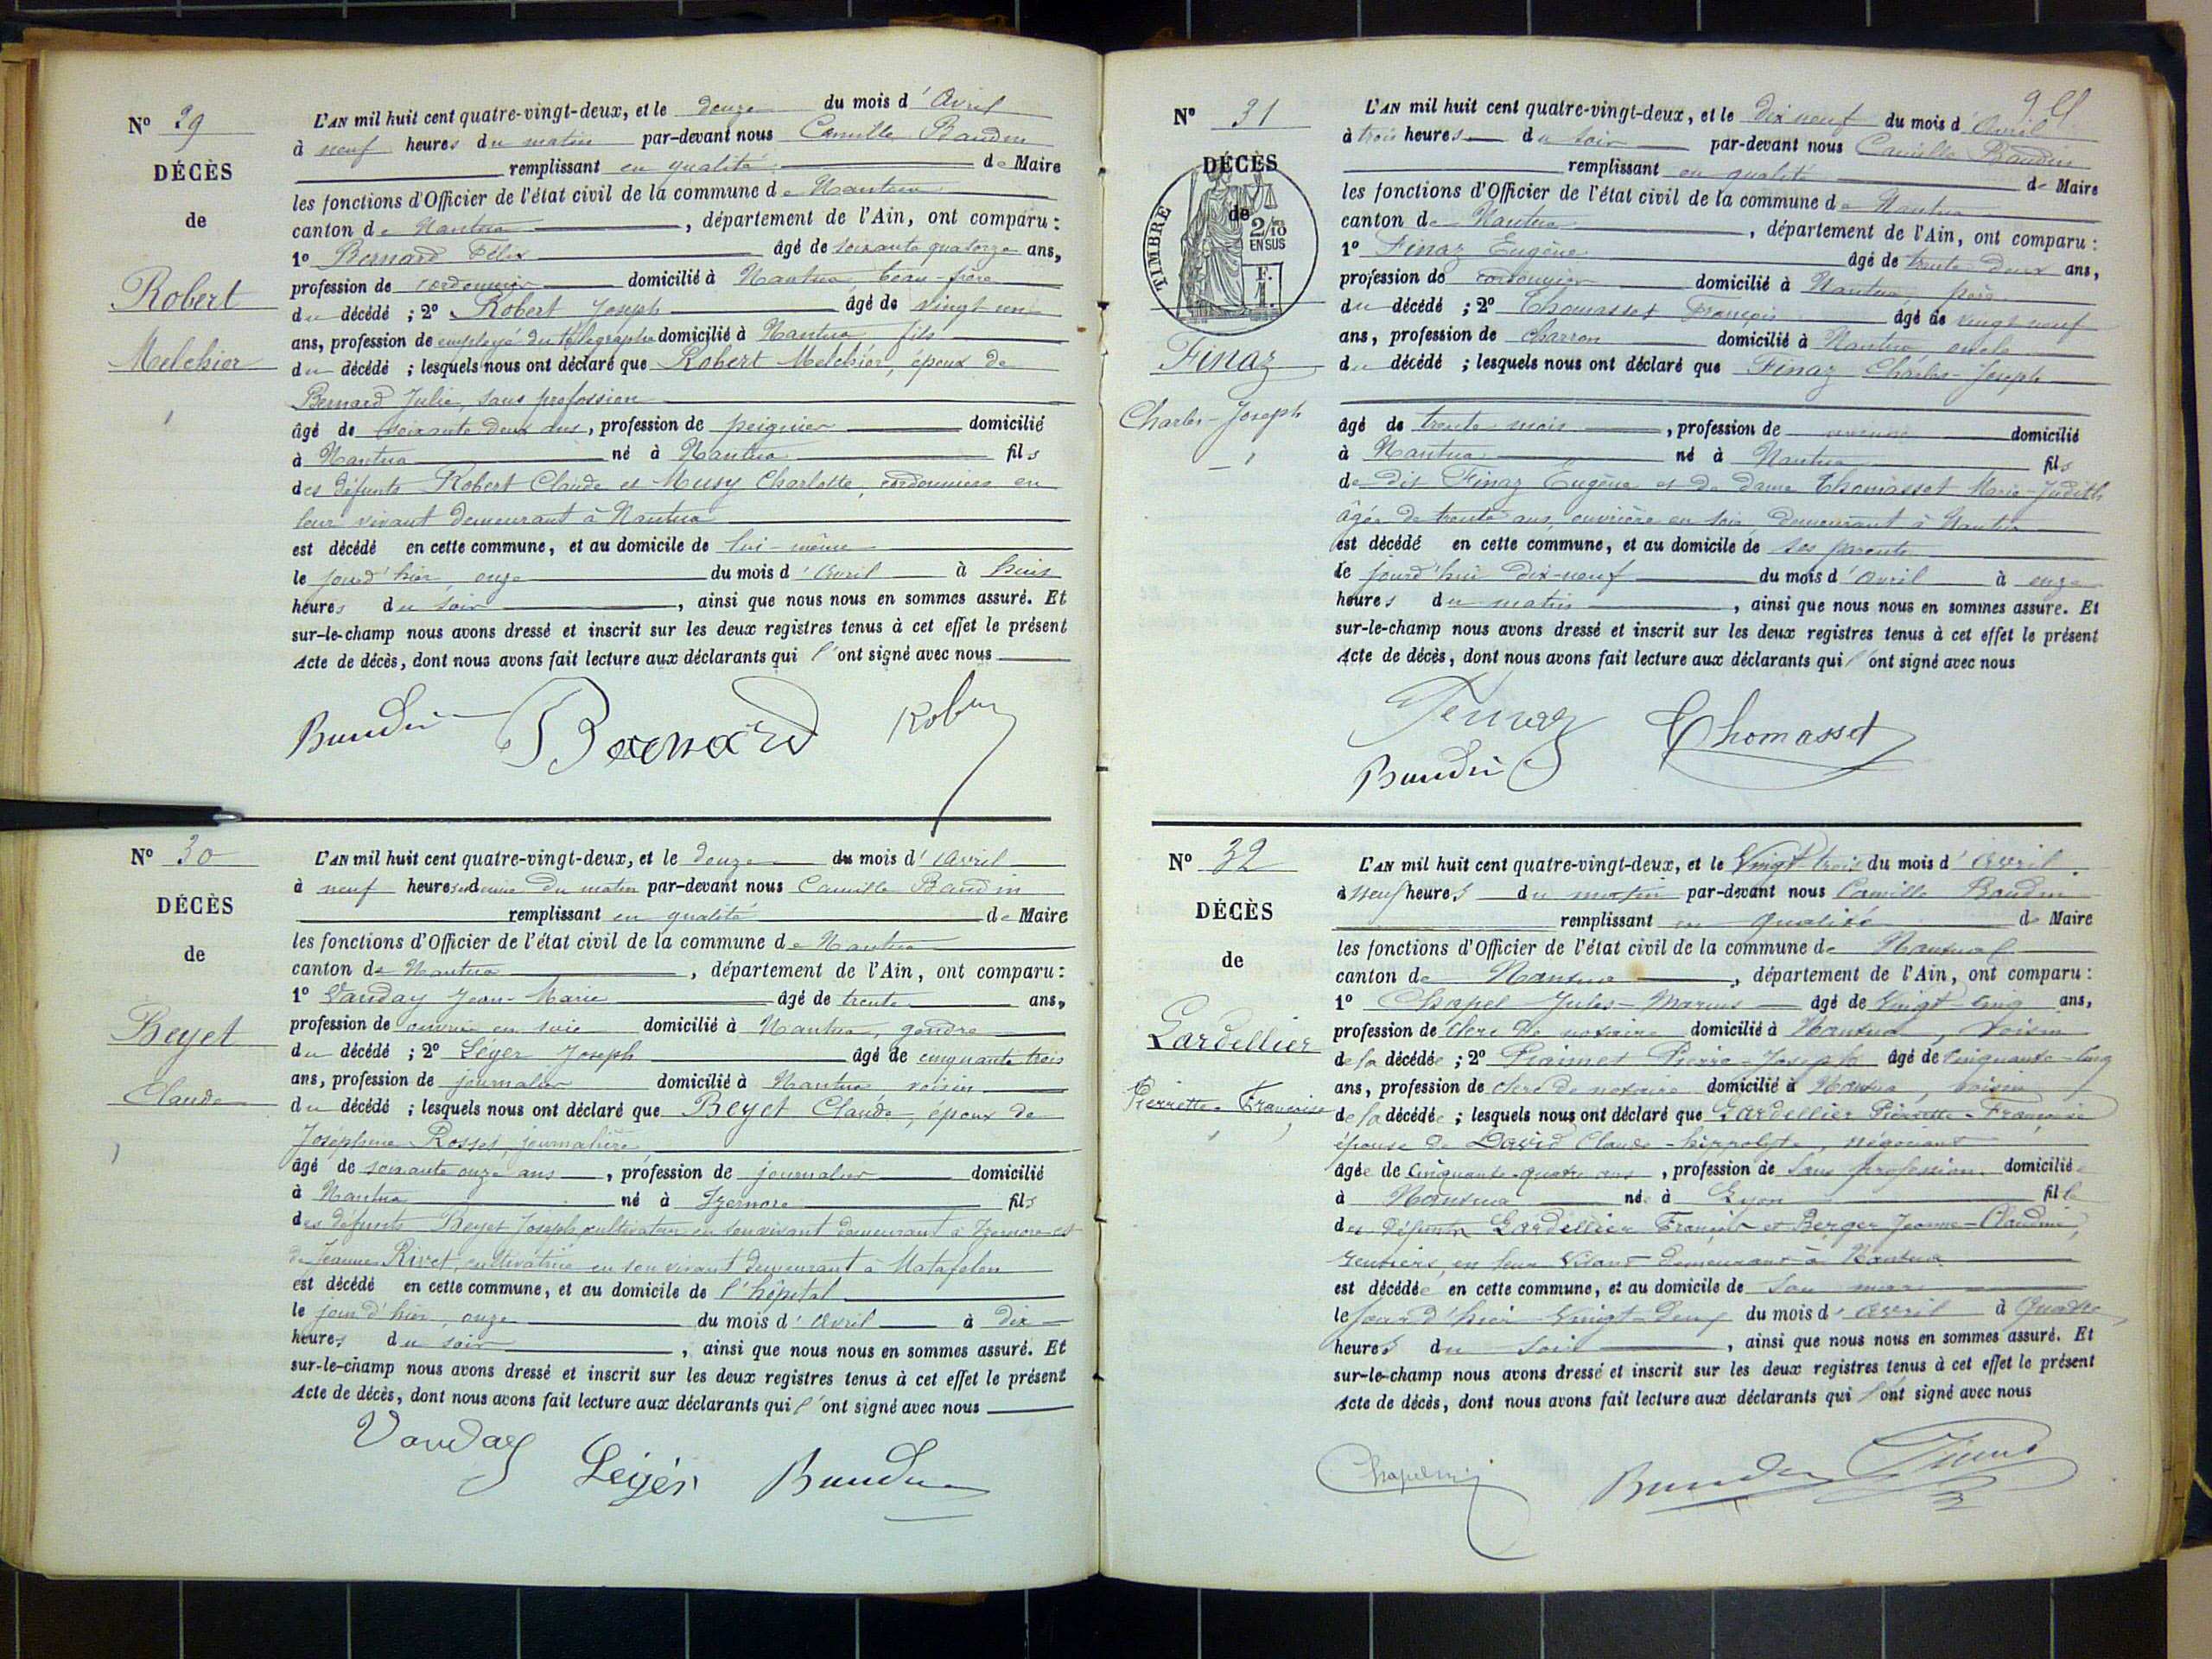 N° 29
DÉCÈS
de
Robert
Melchior
L'AN mil huit cent quatre-vingt-deux, et le douze du mois d'Avril
à neuf heures du matin par-devant nous Camille Baudin
remplissant en qualité de Maire
les fonctions d'Officier de l'état civil de la commune de Nantua
canton de Nantua, département de l'Ain, ont comparu :
1° Bernard Félix âgé de soixante quatorze ans,
profession de cordonnier domicilié à Nantua, beau-frère
du décédé ; 2° Robert Joseph âgé de vingt un
ans, profession de employé du télégraphe domicilié à Nantua fils
du décédé ; lesquels nous ont déclaré que Robert Melchior, époux de
Bernard Julie, sans profession
âgé de soixante deux ans, profession de peignier domicilié
à Nantua né à Nantua fils
des défunts Robert Claude et Musy Charlotte, cordonniers en
leur vivant demeurant à Nantua
est décédé en cette commune, et au domicile de lui-même
le jour d'hier, onze du mois d'Avril à huit
heures du soir, ainsi que nous nous en sommes assuré. Et
sur-le-champ nous avons dressé et inscrit sur les deux registres tenus à cet effet le présent
Acte de décès, dont nous avons fait lecture aux déclarants qui l'ont signé avec nous
Baudin Bernard Robert
N° 30
DÉCÈS
de
Beyet
Claude
L'AN mil huit cent quatre-vingt-deux, et le douze du mois d'Avril
à neuf heures et demie du matin par-devant nous Camille Baudin
remplissant en qualité de Maire
les fonctions d'Officier de l'état civil de la commune de Nantua
canton de Nantua, département de l'Ain, ont comparu :
1° Vanday Jean-Marie âgé de trente ans,
profession de ouvrier en soie domicilié à Nantua, gendre
du décédé ; 2° Léger Joseph âgé de cinquante trois
ans, profession de journalier domicilié à Nantua voisin
du décédé ; lesquels nous ont déclaré que Beyet Claude, époux de
Joséphine Rosset, journalière
âgé de soixante onze ans, profession de journalier domicilié
à Nantua né à Izernore fils
des défunts Beyet Joseph cultivateur en son vivant demeurant à Izernore et
de Jeanne Rivet, cultivatrice en son vivant demeurant à Matafelon
est décédé en cette commune, et au domicile de l'hôpital
le jour d'hier, onze du mois d'Avril à dix
heures du soir, ainsi que nous nous en sommes assuré. Et
sur-le-champ nous avons dressé et inscrit sur les deux registres tenus à cet effet le présent
Acte de décès, dont nous avons fait lecture aux déclarants qui l'ont signé avec nous
Vanday Léger Baudin
N° 31
DÉCÈS
de
TIMBRE
2/10
EN SUS
F.
Finaz
Charles-Joseph
L'AN mil huit cent quatre-vingt-deux, et le dix neuf du mois d'Avril
à trois heures du soir par-devant nous Camille Baudin
remplissant en qualité de Maire
les fonctions d'Officier de l'état civil de la commune de Nantua
canton de Nantua, département de l'Ain, ont comparu :
1° Finaz Eugène âgé de trente deux ans,
profession de cordonnier domicilié à Nantua, père
du décédé ; 2° Thomasset François âgé de vingt neuf
ans, profession de charron domicilié à Nantua oncle
du décédé ; lesquels nous ont déclaré que Finaz Charles-Joseph
âgé de trente mois, profession de aucune domicilié
à Nantua né à Nantua fils
de dit Finaz Eugène et de dame Thomasset Marie-Judith
âgée de trente ans, ouvrière en soie, demeurant à Nantua
est décédé en cette commune, et au domicile de ses parents
le jourd'hui dix-neuf du mois d'Avril à onze
heures du matin, ainsi que nous nous en sommes assuré. Et
sur-le-champ nous avons dressé et inscrit sur les deux registres tenus à cet effet le présent
Acte de décès, dont nous avons fait lecture aux déclarants qui l'ont signé avec nous
Finaz Thomasset
Baudin
N° 32
DÉCÈS
de
Lardellier
Pierrette-Françoise
L'AN mil huit cent quatre-vingt-deux, et le Vingt trois du mois d'Avril
à neuf heures du matin par-devant nous Camille Baudin
remplissant en qualité de Maire
les fonctions d'Officier de l'état civil de la commune de Nantua
canton de Nantua, département de l'Ain, ont comparu :
1° Chapel Jules-Marius âgé de Vingt cinq ans,
profession de clerc de notaire domicilié à Nantua, voisin
de la décédée ; 2° Pierre-Joseph âgé de Cinquante-cinq
ans, profession de clerc de notaire domicilié à Nantua, voisin
de la décédée ; lesquels nous ont déclaré que Lardellier Pierrette-Françoise
épouse de David Claude-hippolyte, négociant
âgée de Cinquante-quatre ans, profession de Sans profession domiciliée
à Nantua née à Lyon fille
des défunts Lardellier François et Berger Jeanne-Claudine,
rentiers, en leur vivant demeurant à Nantua
est décédée en cette commune, et au domicile de son mari
le jour d'hier Vingt-Deux du mois d'Avril à Quatre
heures du Soir, ainsi que nous nous en sommes assuré. Et
sur-le-champ nous avons dressé et inscrit sur les deux registres tenus à cet effet le présent
Acte de décès, dont nous avons fait lecture aux déclarants qui l'ont signé avec nous
Baudin